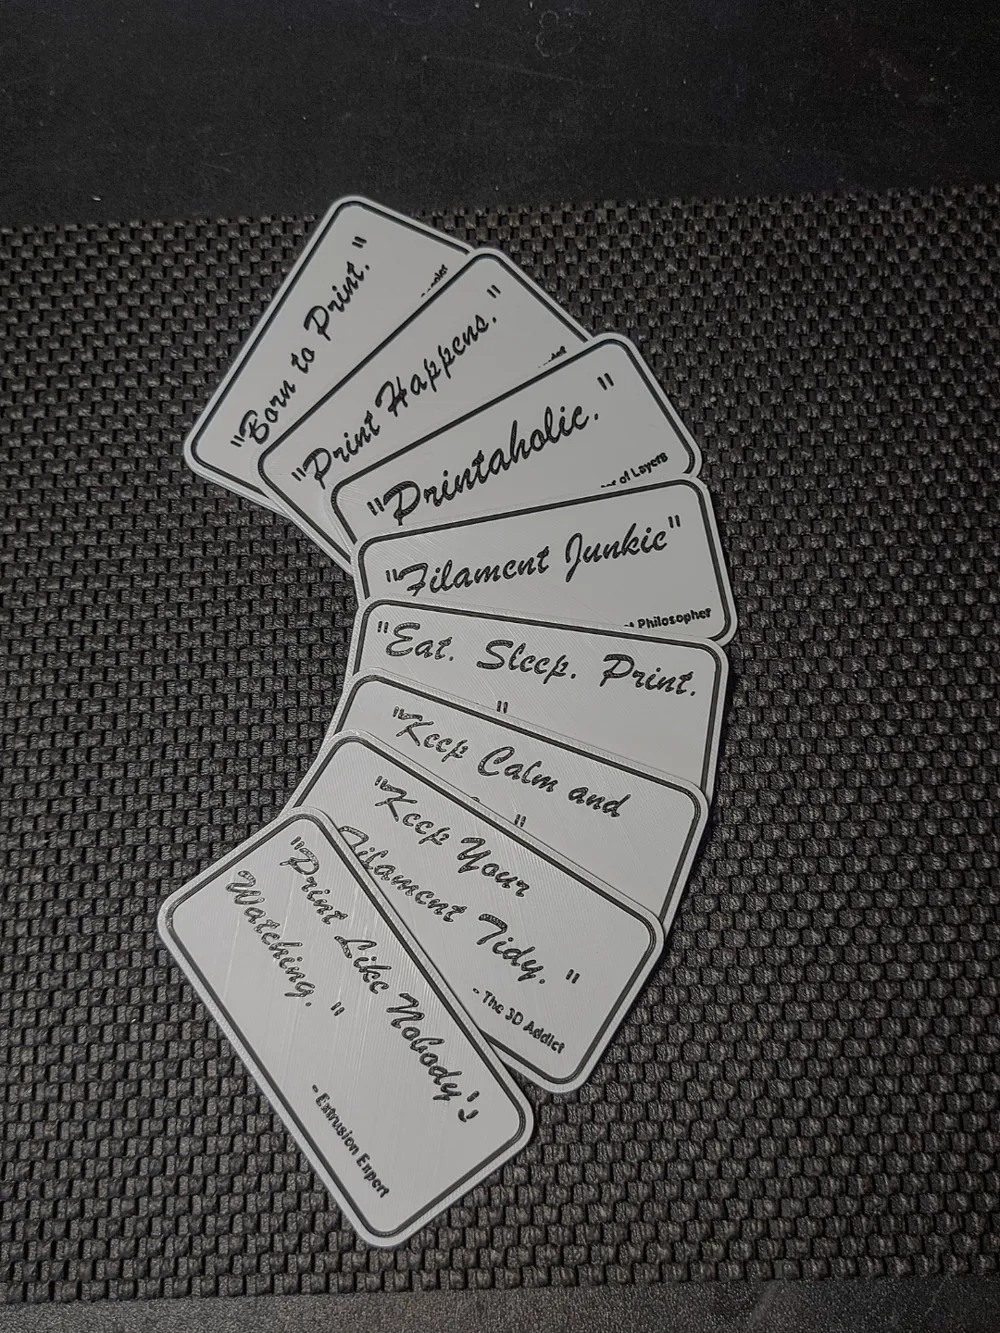 "Born to Print. "
"Print Happens. "
"Printaholic. "
of Layers
"Filament Junkie"
Philosopher
"Eat. Sleep. Print.
"
"Keep Calm and
"
"Keep Your
Filament Tidy. "
- The 3D Addict
"Print Like Nobody's
Watching. "
- Extrusion Expert